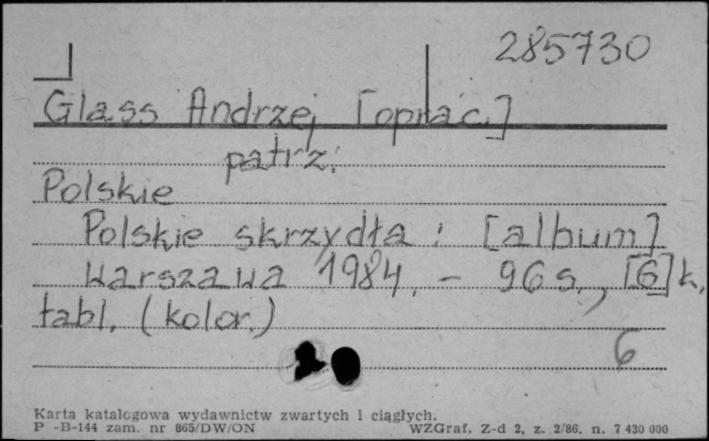 285730
Glass Andrzej [oprac.]
patrz:
Polskie
Polskie skrzydła : [album]
Warszawa 1984. – 96 s., [6] k.
tabl. (kolor.)
6
Karta katalogowa wydawnictw zwartych i ciągłych.
P -B-144 zam. nr 865/DW/ON WZGraf. Z-d 2, z. 2/86. n. 7 430 000